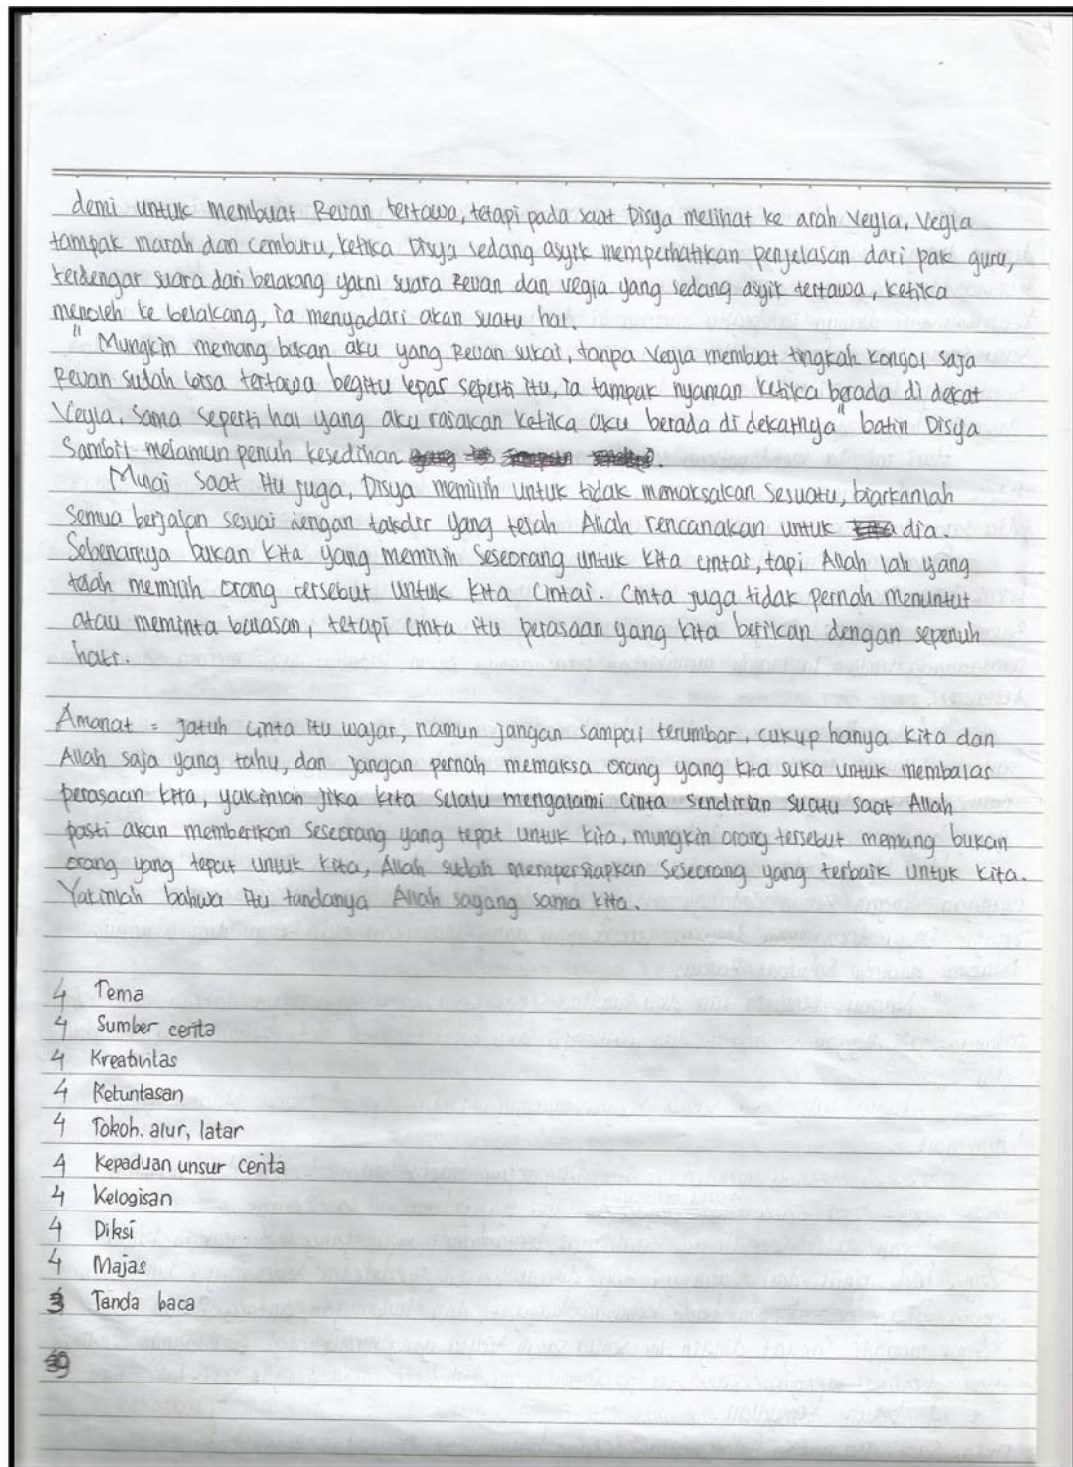 demi untuk membuat Revan tertawa, tetapi pada saat Disya melihat ke arah Veyla, Vegia
tampak marah dan cemburu, ketika Disya sedang asyik memperhatikan penjelasan dari pak guru,
terdengar suara dari belakang yakni suara Revan dan vegia yang sedang asyik tertawa, ketika
menoleh ke belakang, ia menyadari akan suatu hal.
" Mungkin memang bukan aku yang Revan sukai, tanpa Veyla membuat tingkah konyol saja
Revan sudah bisa tertawa begitu lepas seperti itu, ia tampak nyaman ketika berada di dekat
Veyla. Sama seperti hal yang aku rasakan ketika aku berada di dekatnya" batin Disya
Sambil melamun penuh kesedihan
Mulai saat itu juga, Disya memilih untuk tidak memaksakan sesuatu, biarkanlah
semua berjalan sesuai dengan takdir yang telah Allah rencanakan untuk dia.
Sebenarnya bukan kita yang memilih seseorang untuk kita cintai, tapi Allah lah yang
telah memilih orang tersebut untuk kita cintai. Cinta juga tidak pernah menuntut
atau meminta balasan, tetapi cinta itu perasaan yang kita berikan dengan sepenuh
hati.
Amanat = Jatuh cinta itu wajar, namun jangan sampai terumbar, cukup hanya kita dan
Allah saja yang tahu, dan jangan pernah memaksa orang yang kita suka untuk membalas
perasaan kita, yakinlah jika kita selalu mengalami cinta sendirian suatu saat Allah
pasti akan memberikan seseorang yang tepat untuk kita, mungkin orang tersebut memang bukan
orang yang tepat untuk kita, Allah sudah mempersiapkan seseorang yang terbaik untuk kita.
Yakinlah bahwa itu tandanya Allah sayang sama kita.
4 Tema
4 Sumber cerita
4 Kreativitas
4 Ketuntasan
4 Tokoh, alur, latar
4 Kepaduan unsur cerita
4 Kelogisan
4 Diksi
4 Majas
3 Tanda baca
39